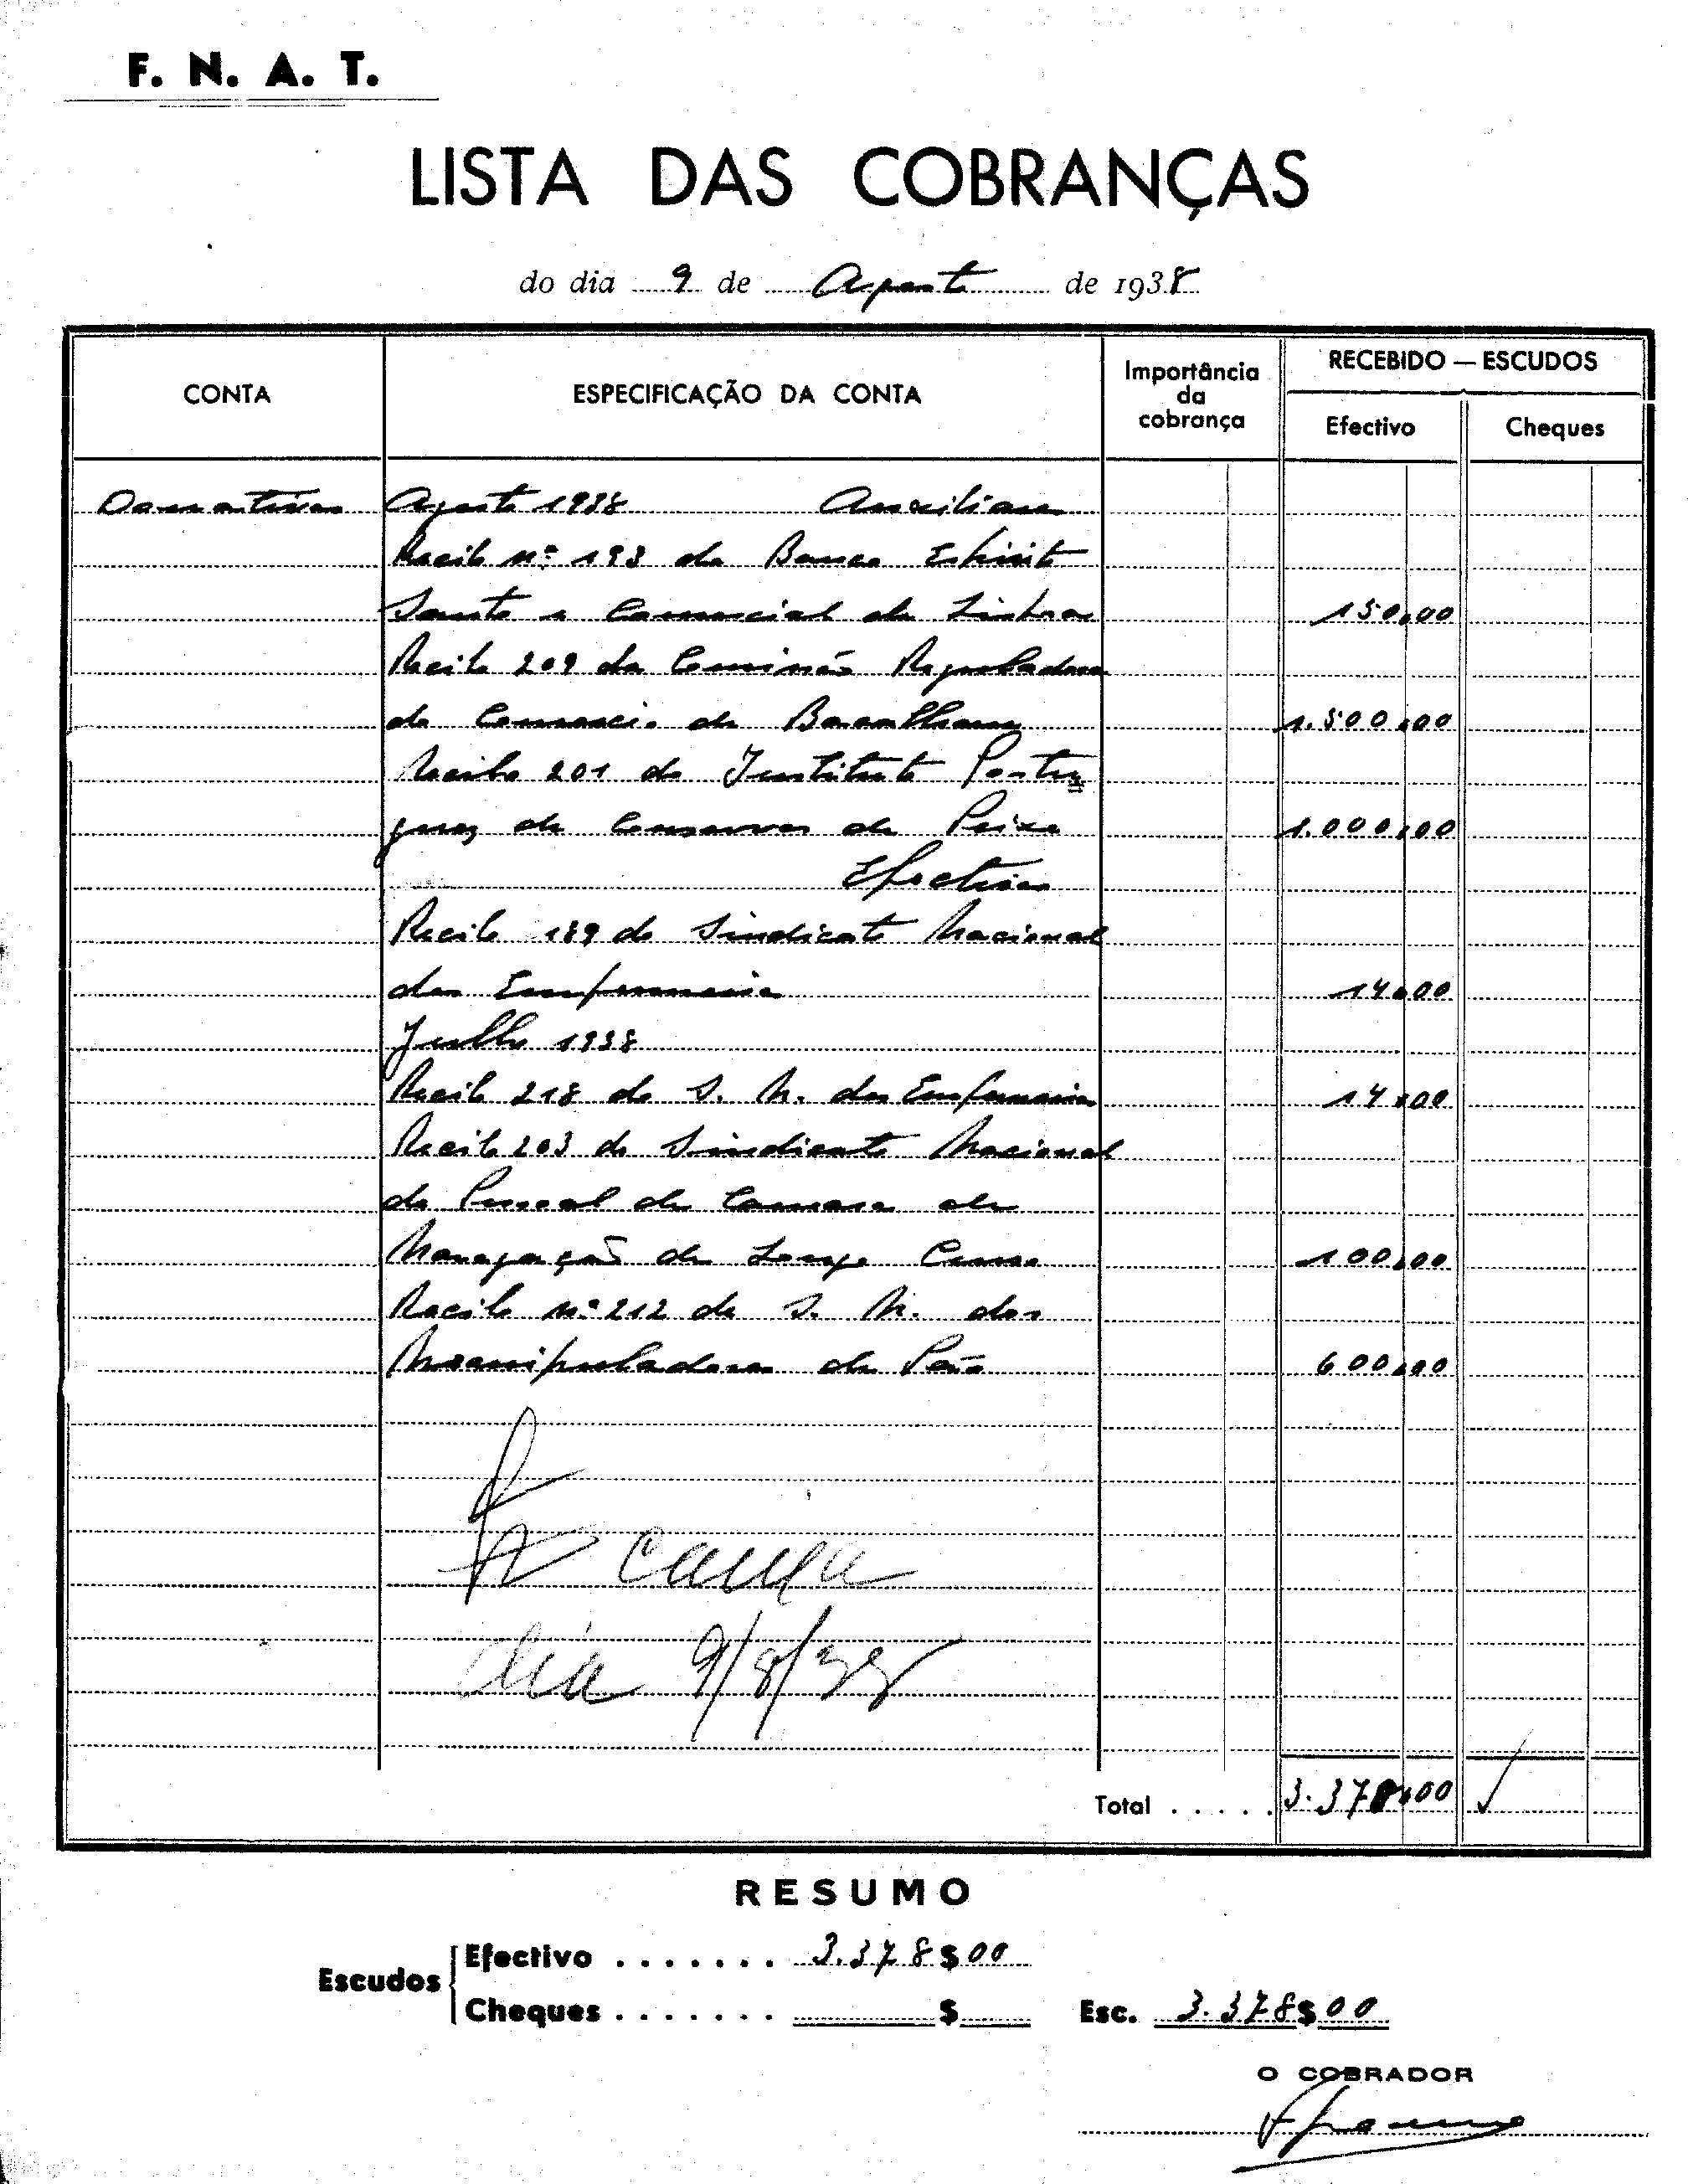 F. N. A. T.
LISTA DAS COBRANÇAS
do dia 9 de Agosto de 1938
CONTA ESPECIFICAÇÃO DA CONTA Importância da cobrança RECEBIDO — ESCUDOS
Efectivo Cheques
Donativos Agosto 1938 Auxiliares
Recibo nº 193 do Banco Espirito
Santo e Comercial de Lisboa 150,00
Recibo 209 da Comissão Reguladora
do Comercio de Bacalhau 1.500,00
Recibo 201 do Instituto Portu
guez de Conservas de Peixe 1.000,00
Efectivos
Recibo 189 do Sindicato Nacional
dos Enfermeiros 14,00
Julho 1938
Recibo 218 do S. N. dos Enfermeiros 14,00
Recibo 203 do Sindicato Nacional
do Pessoal de Camara da
Navegação de Longo Curso 100,00
Recibo nº 212 do S. N. dos
Manipuladores de Pão 600,00
caixa
dia 9/8/38
Total . . . . . 3.378,00
RESUMO
Escudos Efectivo . . . . . . . 3.378$00
Cheques . . . . . . . $ Esc. 3.378$00
O COBRADOR